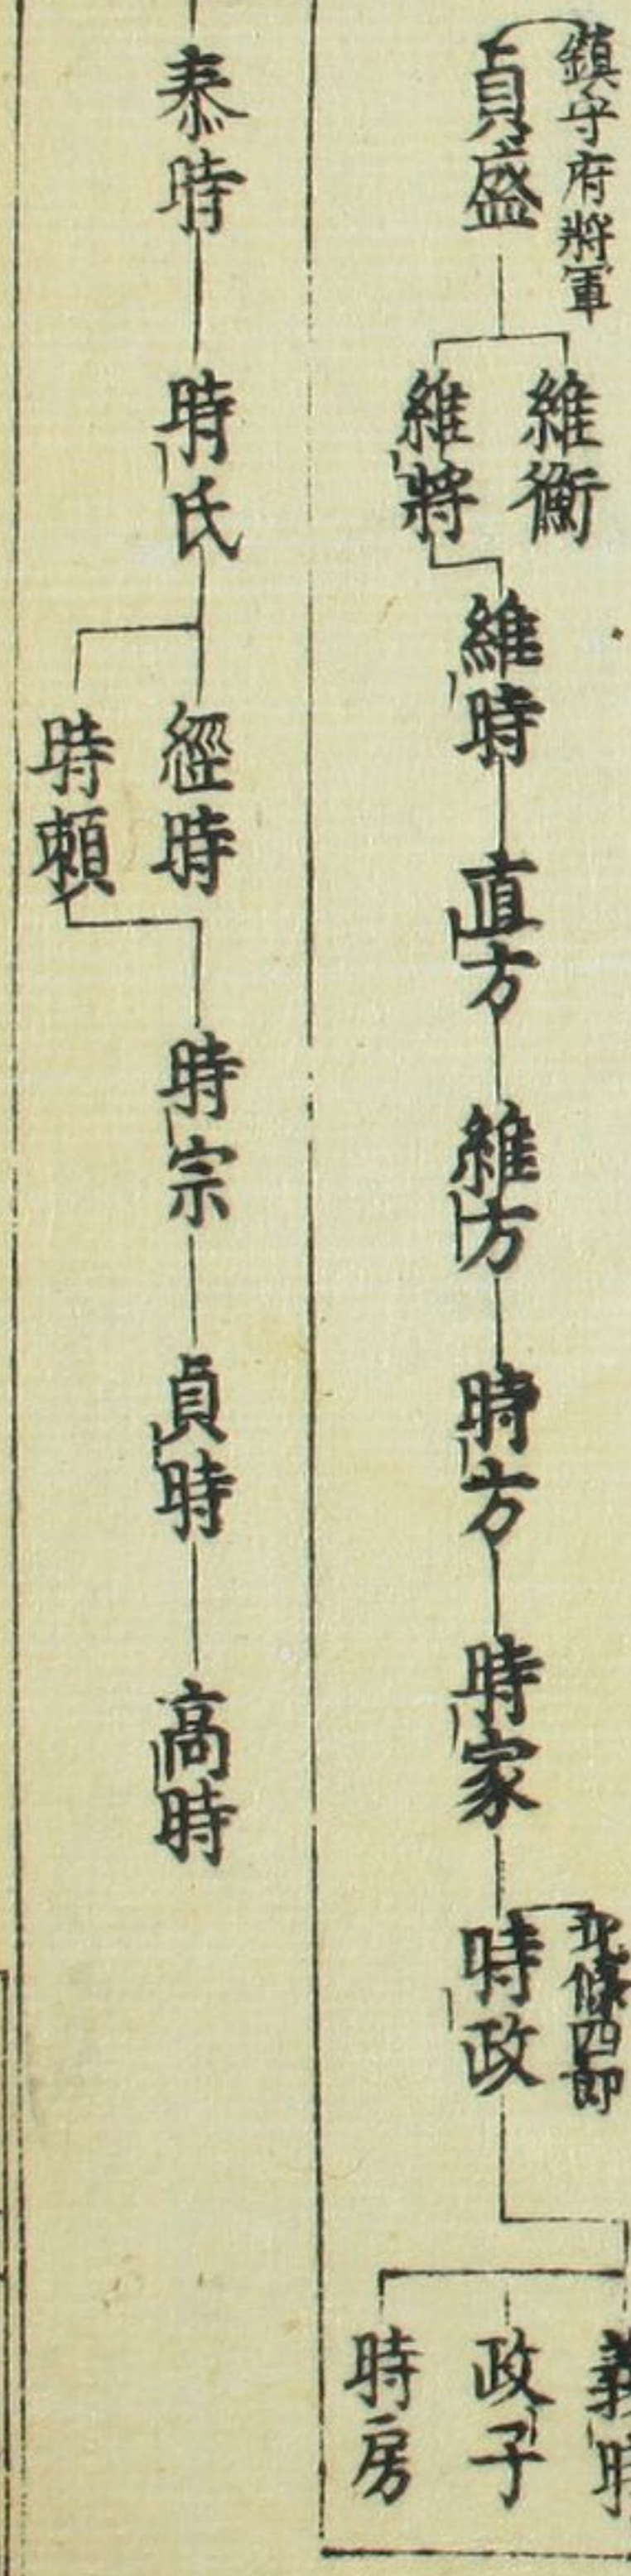 鎮守府將軍
貞盛
維衡
維將
維時
直方
維方
時方
時家
北條四郎
時政
義時
政子
時房
泰時
時氏
經時
時頼
時宗
貞時
高時